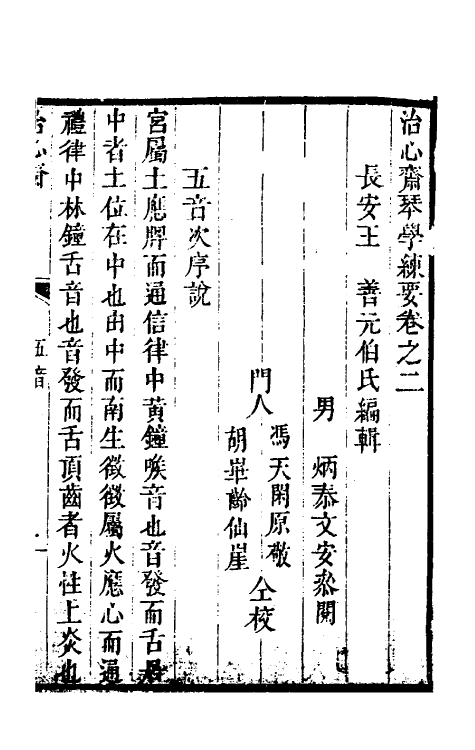 治心齋琴學練要卷之二
長安王　善元伯氏編輯
男　炳泰文安叅閱
門人
馮天閑原敬
胡崋齡仙崖
仝校
五音次序說
宮屬土應脾而通信律中黃鐘喉音也音發而舌居
中者土位在中也由中而南生徵徵屬火應心而通
禮律中林鐘舌音也音發而舌頂齒者火性上炎也
治心齋
五音